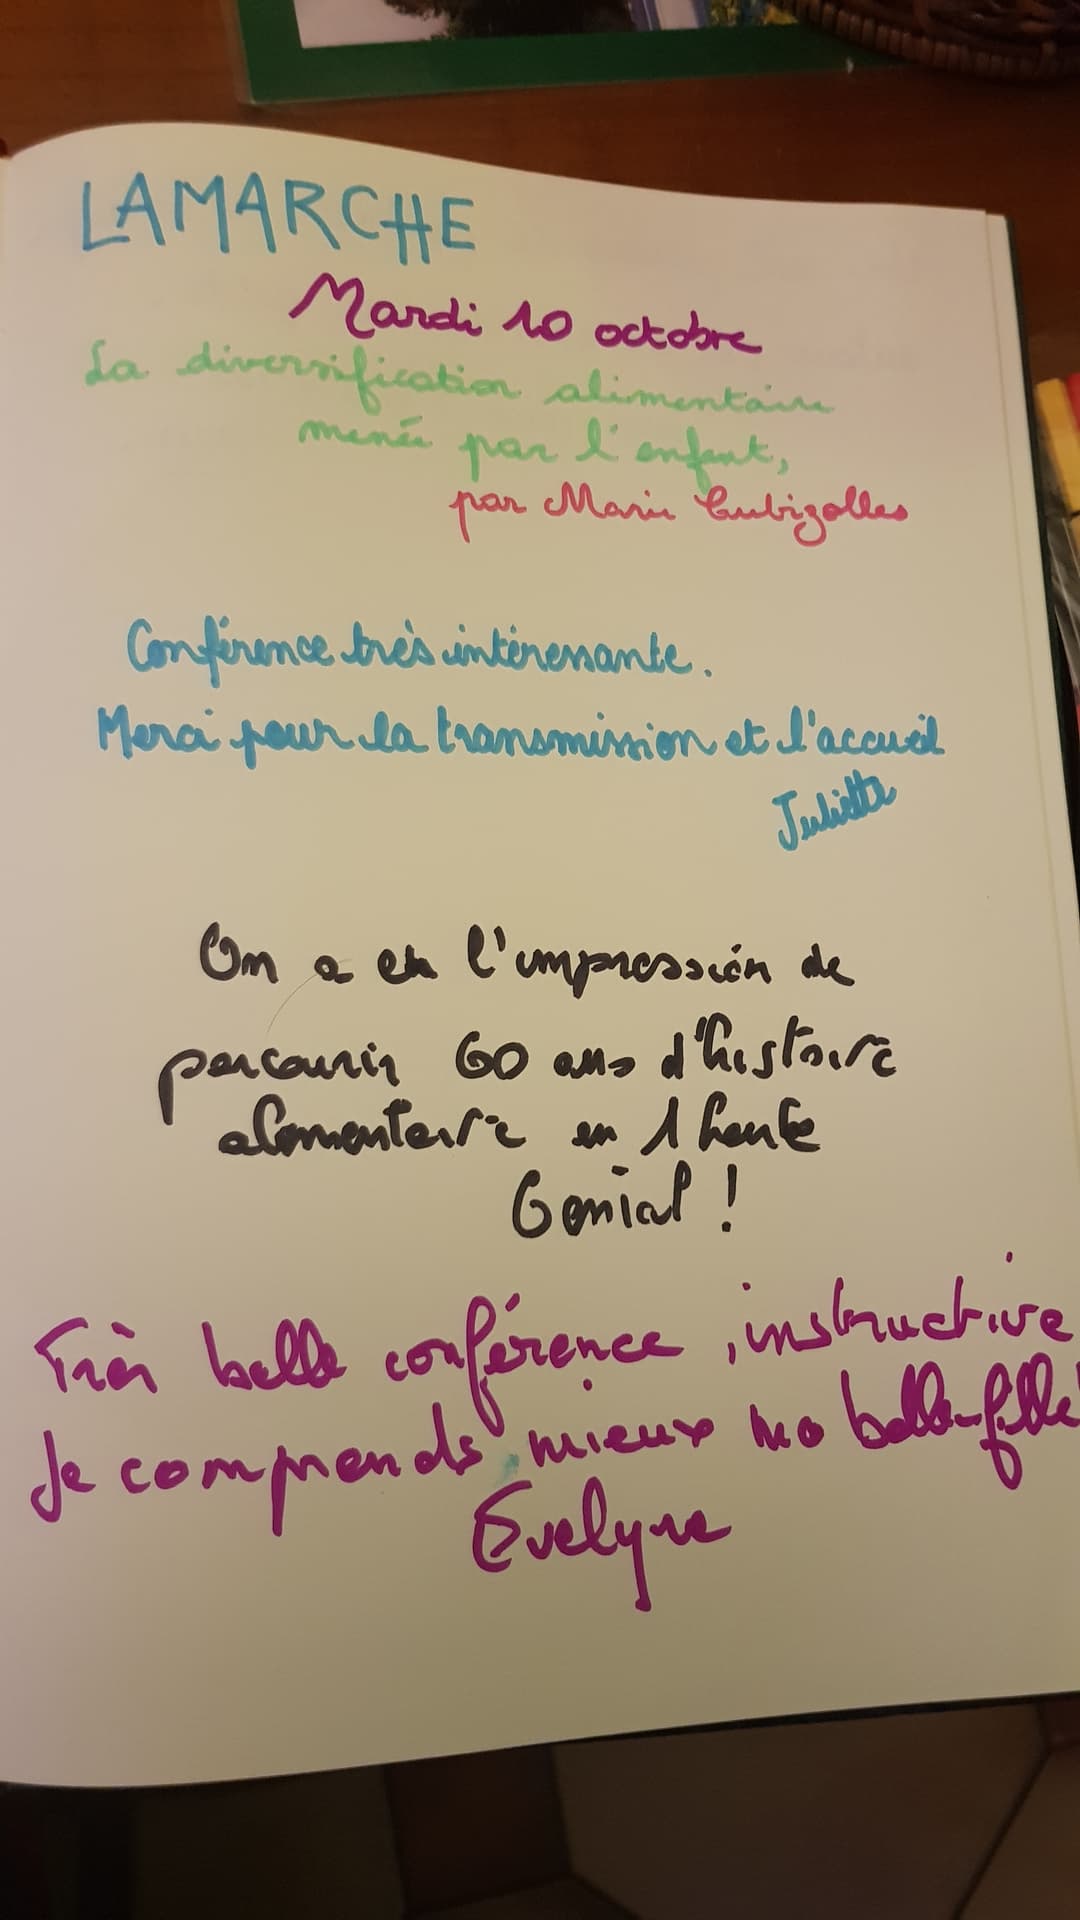 LAMARCHE
Mardi 10 octobre
La diversification alimentaire
menée par l'enfant,
par Marie Cubizolles
Conférence très intéressante.
Merci pour la transmission et l'accueil
Juliette
On a eu l'impression de
parcourir 60 ans d'histoire
alimentaire en 1 heure
Génial !
Très belle conférence, instructive
Je comprends mieux ma belle-fille
Evelyne